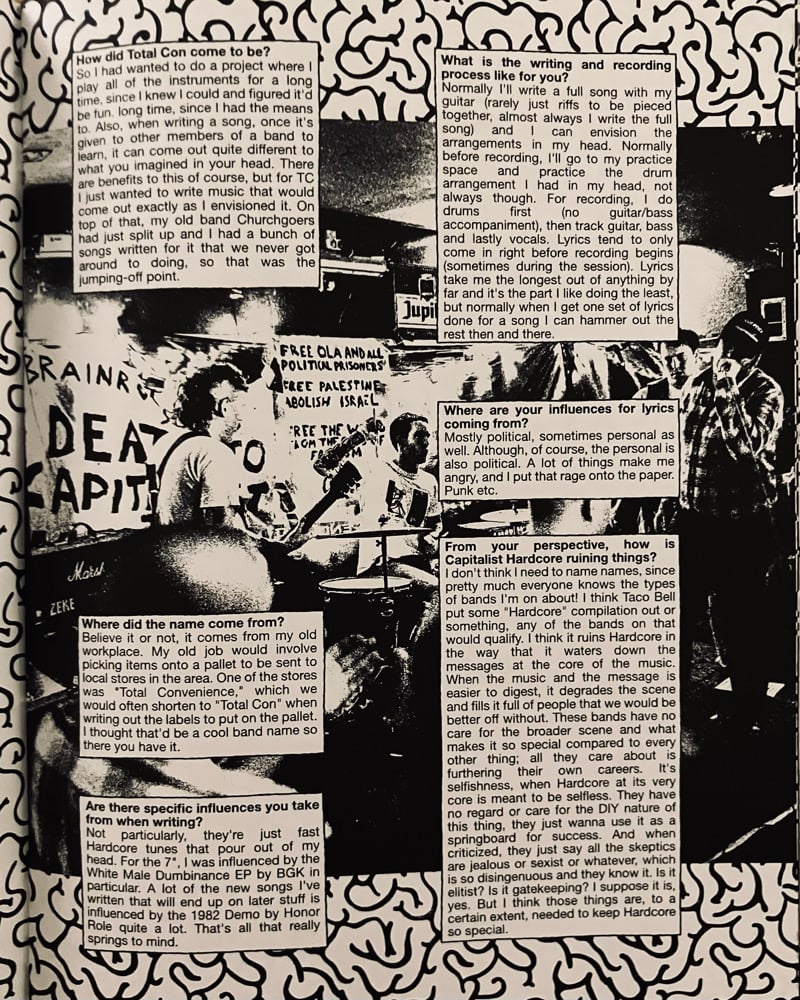 How did Total Con come to be?
So I had wanted to do a project where I
play all of the instruments for a long
time, since I knew I could and figured it'd
be fun. long time, since I had the means
to. Also, when writing a song, once it's
given to other members of a band to
learn, it can come out quite different to
what you imagined in your head. There
are benefits to this of course, but for TC
I just wanted to write music that would
come out exactly as I envisioned it. On
top of that, my old band Churchgoers
had just split up and I had a bunch of
songs written for it that we never got
around to doing, so that was the
jumping-off point.
BRAINR
DEAT TO
CAPIT
FREE OLA AND ALL
POLITICAL PRISONERS
FREE PALESTINE
ABOLISH ISRAEL
FREE THE
FROM THE
Jupi
Marsh
ZEKE
Where did the name come from?
Believe it or not, it comes from my old
workplace. My old job would involve
picking items onto a pallet to be sent to
local stores in the area. One of the stores
was "Total Convenience," which we
would often shorten to "Total Con" when
writing out the labels to put on the pallet.
I thought that'd be a cool band name so
there you have it.
Are there specific influences you take
from when writing?
Not particularly, they're just fast
Hardcore tunes that pour out of my
head. For the 7", I was influenced by the
White Male Dumbinance EP by BGK in
particular. A lot of the new songs I've
written that will end up on later stuff is
influenced by the 1982 Demo by Honor
Role quite a lot. That's all that really
springs to mind.
What is the writing and recording
process like for you?
Normally I'll write a full song with my
guitar (rarely just riffs to be pieced
together, almost always I write the full
song) and I can envision the
arrangements in my head. Normally
before recording, I'll go to my practice
space and practice the drum
arrangement I had in my head, not
always though. For recording, I do
drums first (no guitar/bass
accompaniment), then track guitar, bass
and lastly vocals. Lyrics tend to only
come in right before recording begins
(sometimes during the session). Lyrics
take me the longest out of anything by
far and it's the part I like doing the least,
but normally when I get one set of lyrics
done for a song I can hammer out the
rest then and there.
Where are your influences for lyrics
coming from?
Mostly political, sometimes personal as
well. Although, of course, the personal is
also political. A lot of things make me
angry, and I put that rage onto the paper.
Punk etc.
From your perspective, how is
Capitalist Hardcore ruining things?
I don't think I need to name names, since
pretty much everyone knows the types
of bands I'm on about! I think Taco Bell
put some "Hardcore" compilation out or
something, any of the bands on that
would qualify. I think it ruins Hardcore in
the way that it waters down the
messages at the core of the music.
When the music and the message is
easier to digest, it degrades the scene
and fills it full of people that we would be
better off without. These bands have no
care for the broader scene and what
makes it so special compared to every
other thing; all they care about is
furthering their own careers. It's
selfishness, when Hardcore at its very
core is meant to be selfless. They have
no regard or care for the DIY nature of
this thing, they just wanna use it as a
springboard for success. And when
criticized, they just say all the skeptics
are jealous or sexist or whatever, which
is so disingenuous and they know it. Is it
elitist? Is it gatekeeping? I suppose it is,
yes. But I think those things are, to a
certain extent, needed to keep Hardcore
so special.